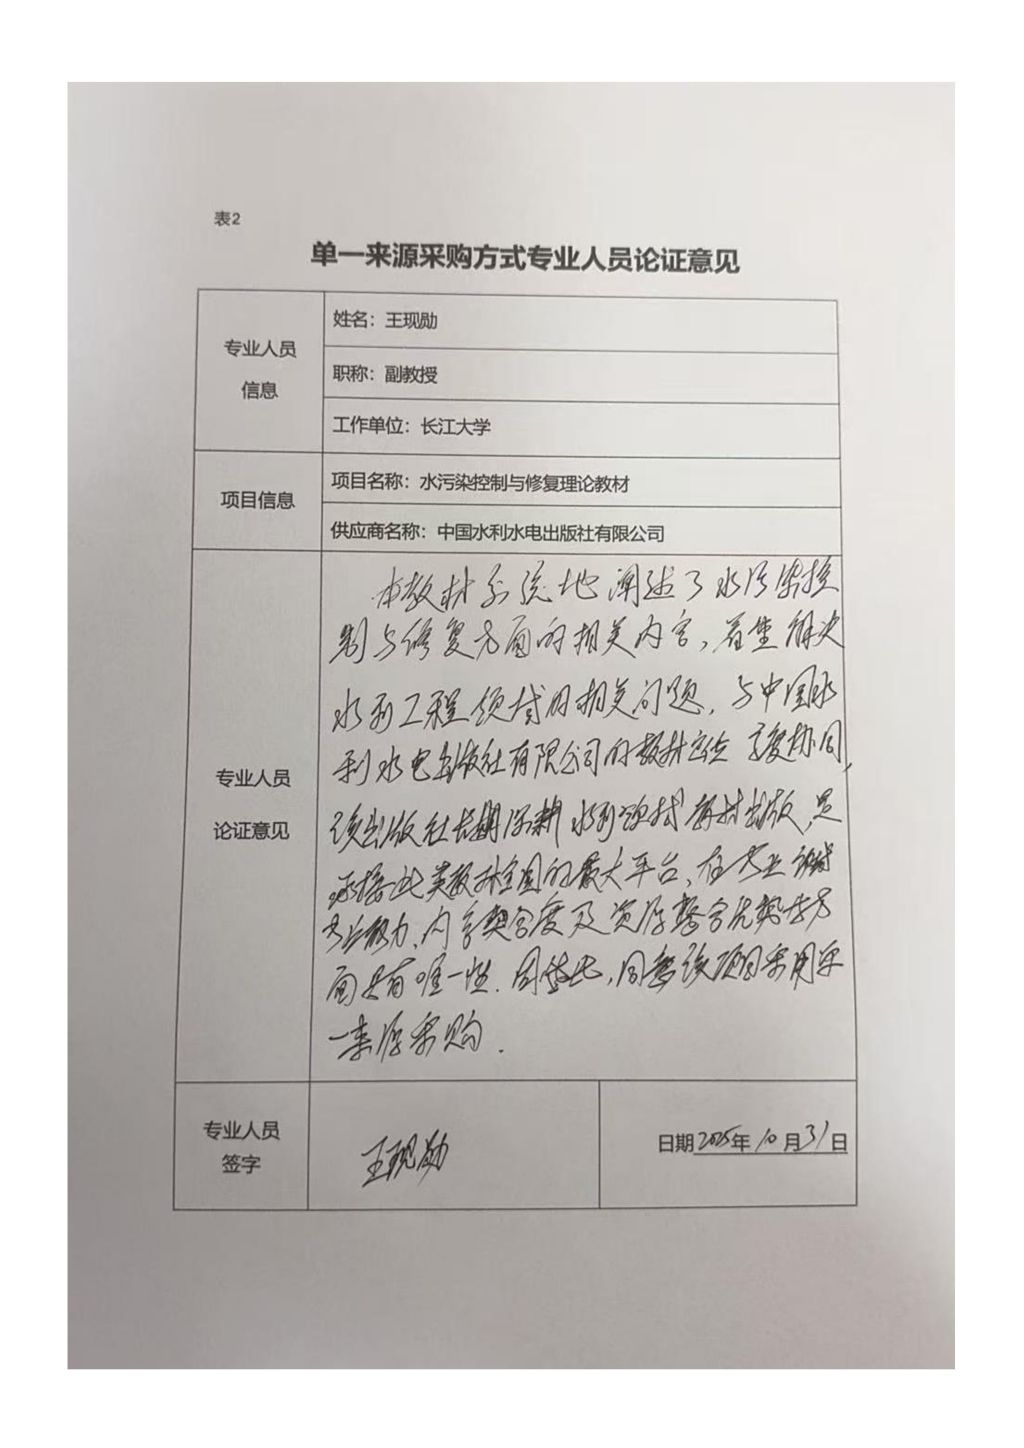 表2
单一来源采购方式专业人员论证意见
专业人员
信息
姓名：王现勋
职称：副教授
工作单位：长江大学
项目信息
项目名称：水污染控制与修复理论教材
供应商名称：中国水利水电出版社有限公司
专业人员
论证意见
本教材系统地阐述了水污染控
制与修复方面的相关内容，着重解决
水利工程领域的相关问题，与中国水
利水电出版社有限公司的教材定位高度协同，
该出版社长期深耕水利领域教材出版，是
承接此类教材全国的最大平台，在专业
能力、内容契合度及资源整合优势等方
面具有唯一性。因此，同意该项目采用单
一来源采购.
专业人员
签字
王现勋
日期2025年10月31日